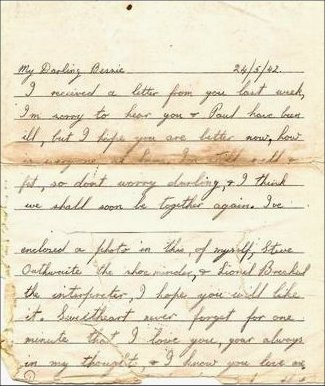 My Darling Bessie 24/5/42.
I received a letter from you last week,
I'm sorry to hear you & Paul have been
ill, but I hope you are better now, how
is everyone at home, I'm still well &
fit, so don't worry darling, & I think
we shall soon be together again. I've
enclosed a photo in this, of myself, Steve
Outhwaite the shoe minder, & Lionel
the interpreter, I hope you will like
it. Sweetheart never forget for one
minute that I love you, your always
in my thought, & I know you love me